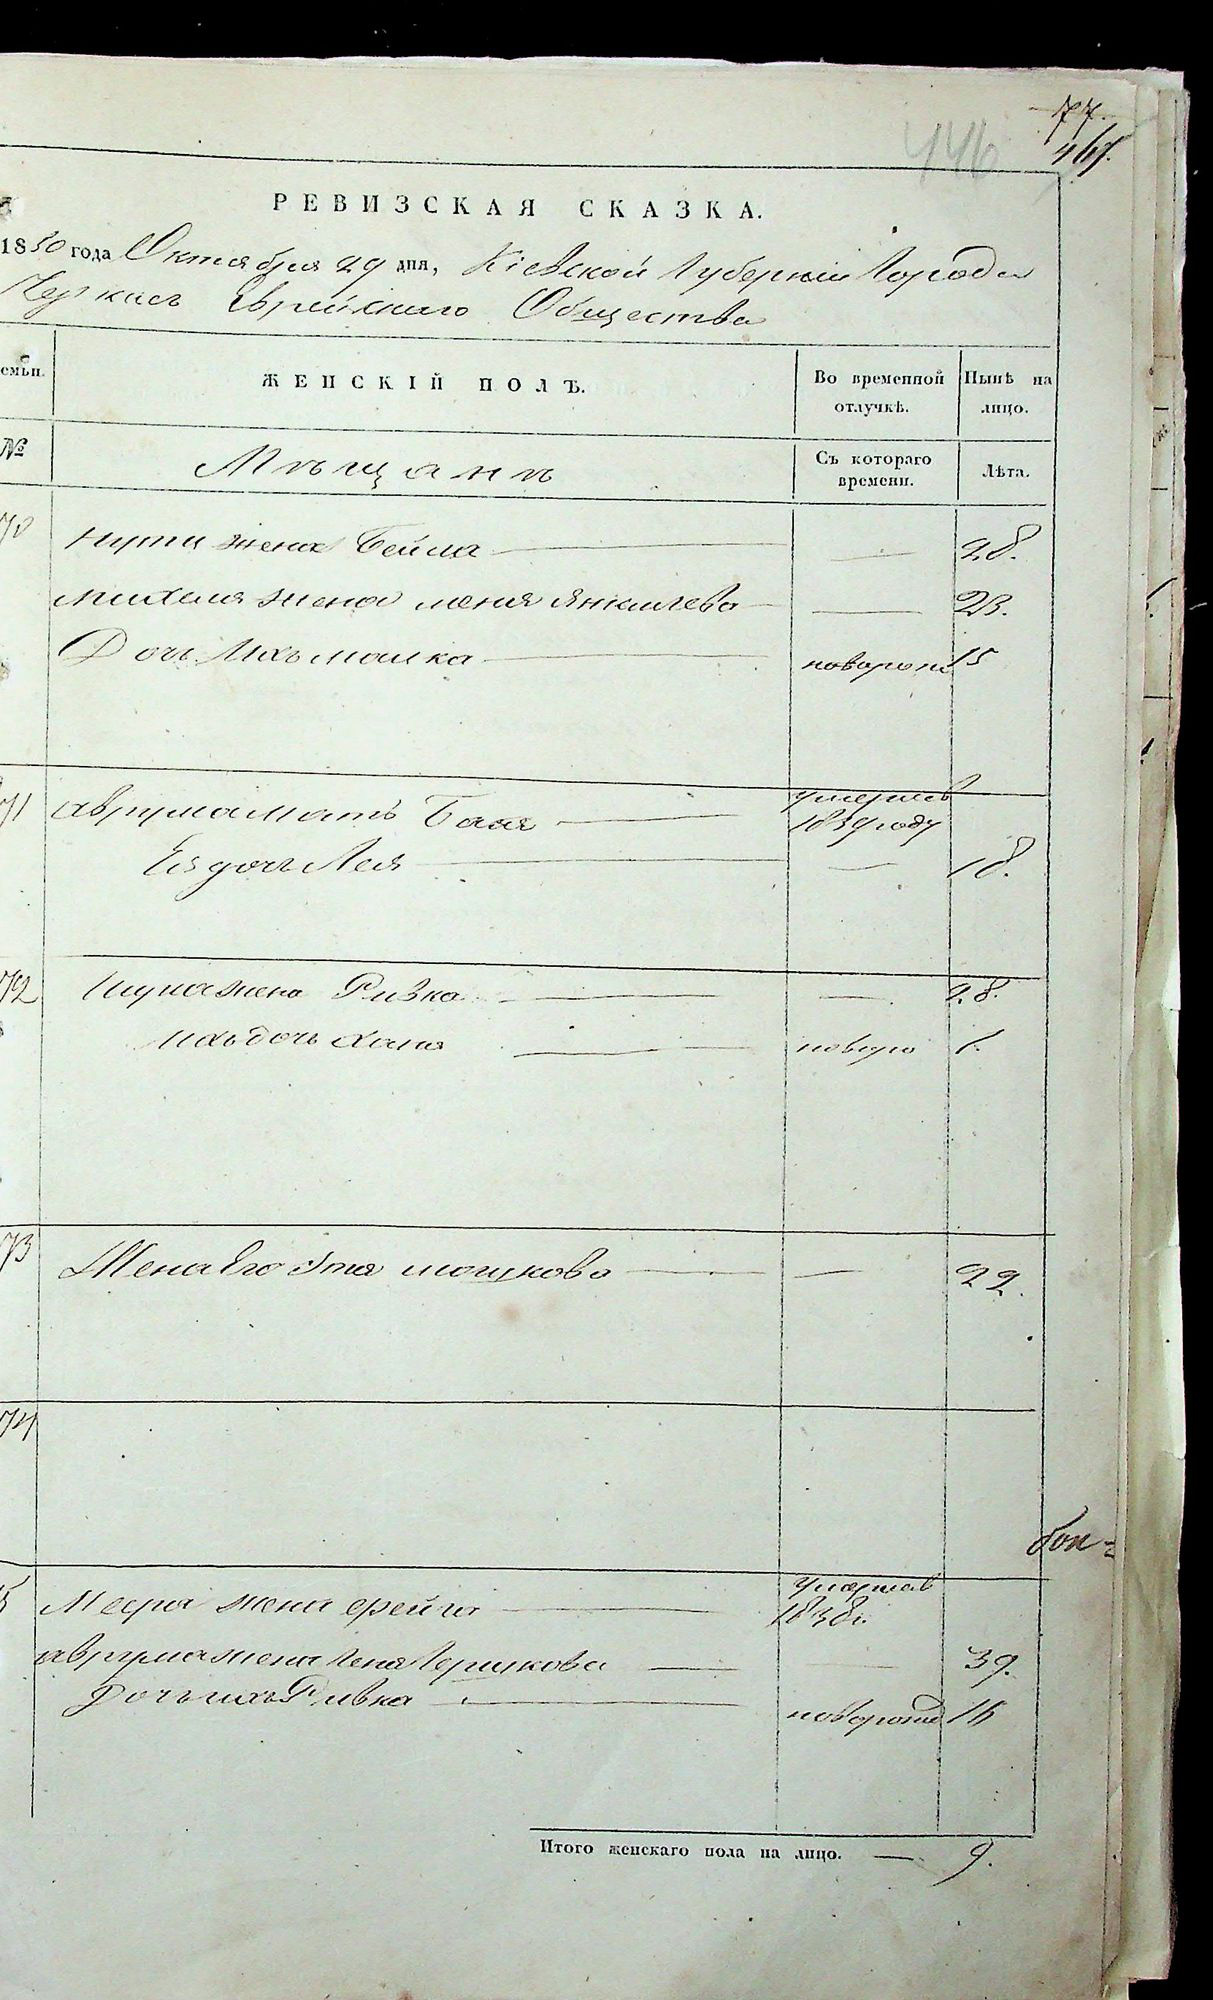 77.
446
461.
РЕВИЗСКАЯ СКАЗКА.
1850 года Октября 29 дня, Кіевской Губерніи Города
Черкасъ Еврейскаго Общества
семьи.
ЖЕНСКІЙ ПОЛЪ.
Во временной отлучкѣ.
Нынѣ на лицо.
№
Мѣщанѣ
Съ котораго времени.
Лѣта.
70 жена Бейла — — 28.
Михеля жена Меня Янкелева — — 23.
Дочь Ихъ Малка — новорож 15
71 Аврума Мать Бася — умершав 1839 году
Ея дочь Лея — — 18.
72 жена Ривка — — 28.
Ихъ дочь Хана — новоро 1.
73 Жена Его Этя Мошкова — — 22.
74
бон-
5 Меера жена Фейга — умершав 1838 г.
Аврума жена Гершкова — — 39.
Дочь ихъ Ривка — новорожд 16
Итого женскаго пола на лицо. — 9.